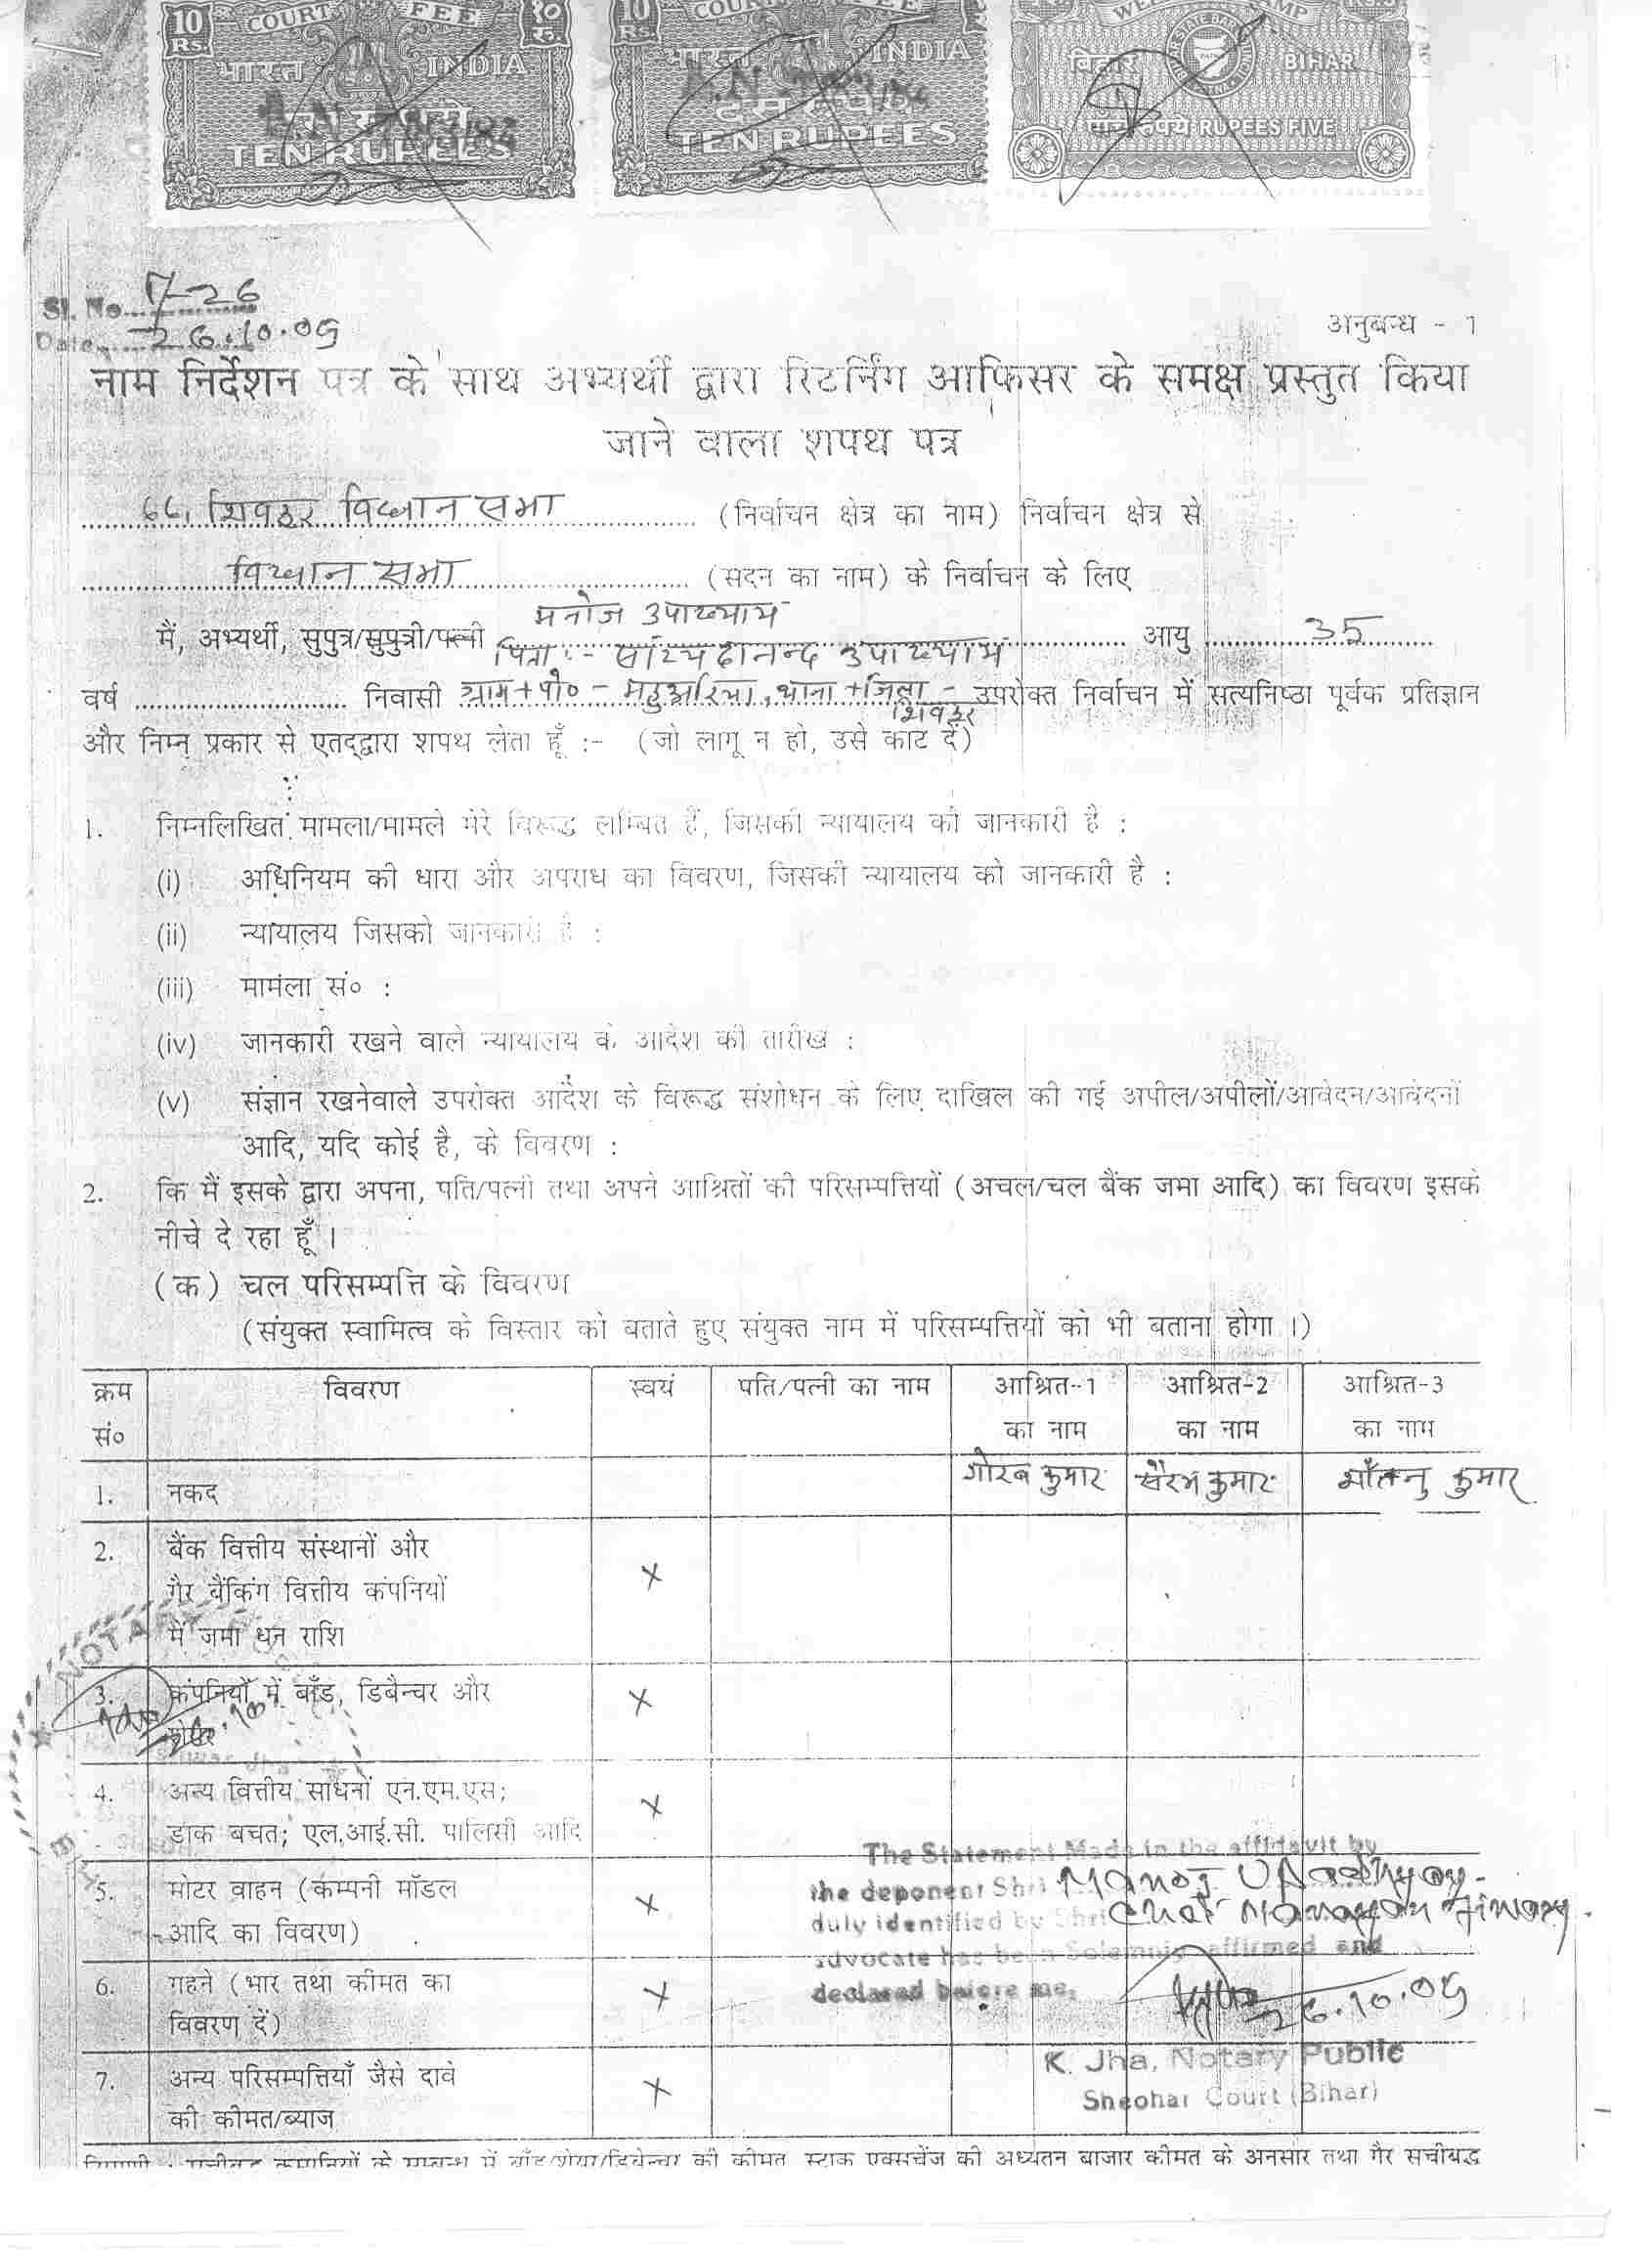 10 COURT FEE १०
Rs. रु.
भारत INDIA
दस रुपये
TEN RUPEES
10 COURT FEE
Rs.
भारत INDIA
दस रुपये
TEN RUPEES
बिहार BIHAR
पाँच रुपये RUPEES FIVE
Sl. No. 26
Date 26.10.05
अनुबन्ध - 1
नाम निर्देशन पत्र के साथ अभ्यर्थी द्वारा रिटर्निंग आफिसर के समक्ष प्रस्तुत किया
जाने वाला शपथ पत्र
66, शिवहर विधान सभा (निर्वाचन क्षेत्र का नाम) निर्वाचन क्षेत्र से
विधान सभा (सदन का नाम) के निर्वाचन के लिए
मनोज उपाध्याय
मैं, अभ्यर्थी, सुपुत्र/सुपुत्री/पत्नी आयु 35
पिता :- सच्चिदानन्द उपाध्याय
वर्ष निवासी ग्राम + पो० - महुअरिया, थाना + जिला - उपरोक्त निर्वाचन में सत्यनिष्ठा पूर्वक प्रतिज्ञान
शिवहर
और निम्न प्रकार से एतद्द्वारा शपथ लेता हूँ :- (जो लागू न हो, उसे काट दें)
1. निम्नलिखित मामला/मामले मेरे विरूद्ध लम्बित हैं, जिसकी न्यायालय को जानकारी है :
(i) अधिनियम की धारा और अपराध का विवरण, जिसकी न्यायालय को जानकारी है :
(ii) न्यायालय जिसको जानकारी है :
(iii) मामला सं० :
(iv) जानकारी रखने वाले न्यायालय के आदेश की तारीख :
(v) संज्ञान रखनेवाले उपरोक्त आदेश के विरूद्ध संशोधन के लिए दाखिल की गई अपील/अपीलों/आवेदन/आवेदनों
आदि, यदि कोई है, के विवरण :
2. कि मैं इसके द्वारा अपना, पति/पत्नी तथा अपने आश्रितों की परिसम्पत्तियों (अचल/चल बैंक जमा आदि) का विवरण इसके
नीचे दे रहा हूँ ।
(क) चल परिसम्पत्ति के विवरण
(संयुक्त स्वामित्व के विस्तार को बताते हुए संयुक्त नाम में परिसम्पत्तियों को भी बताना होगा ।)
क्रम विवरण स्वयं पति/पत्नी का नाम आश्रित-1 आश्रित-2 आश्रित-3
सं० का नाम का नाम का नाम
गौरव कुमार सौरभ कुमार शाँतनु कुमार
1. नकद
2. बैंक वित्तीय संस्थानों और
गैर बैंकिंग वित्तीय कंपनियों X
में जमा धन राशि
NOTARY
3. कंपनियों में बाँड, डिबैन्चर और X
शेयर
4. अन्य वित्तीय साधनों एन.एम.एस; X
डाक बचत; एल.आई.सी. पालिसी आदि
The Statement Made in the affidavit by
5. मोटर वाहन (कम्पनी मॉडल X the deponent Shri Manoj Upadhyay
आदि का विवरण) duly identified by Shri Narayan Tiwary
advocate has been Solemnly affirmed and
6. गहने (भार तथा कीमत का X declared before me.
विवरण दें) 26.10.05
K. Jha, Notary Public
7. अन्य परिसम्पत्तियाँ जैसे दावे X Sheohar Court (Bihar)
की कीमत/ब्याज
टिप्पणी : सूचीबद्ध कम्पनियों के सम्बन्ध में बाँड/शेयर/डिबेन्चर की कीमत स्टाक एक्सचेंज की अध्यतन बाजार कीमत के अनुसार तथा गैर सूचीबद्ध